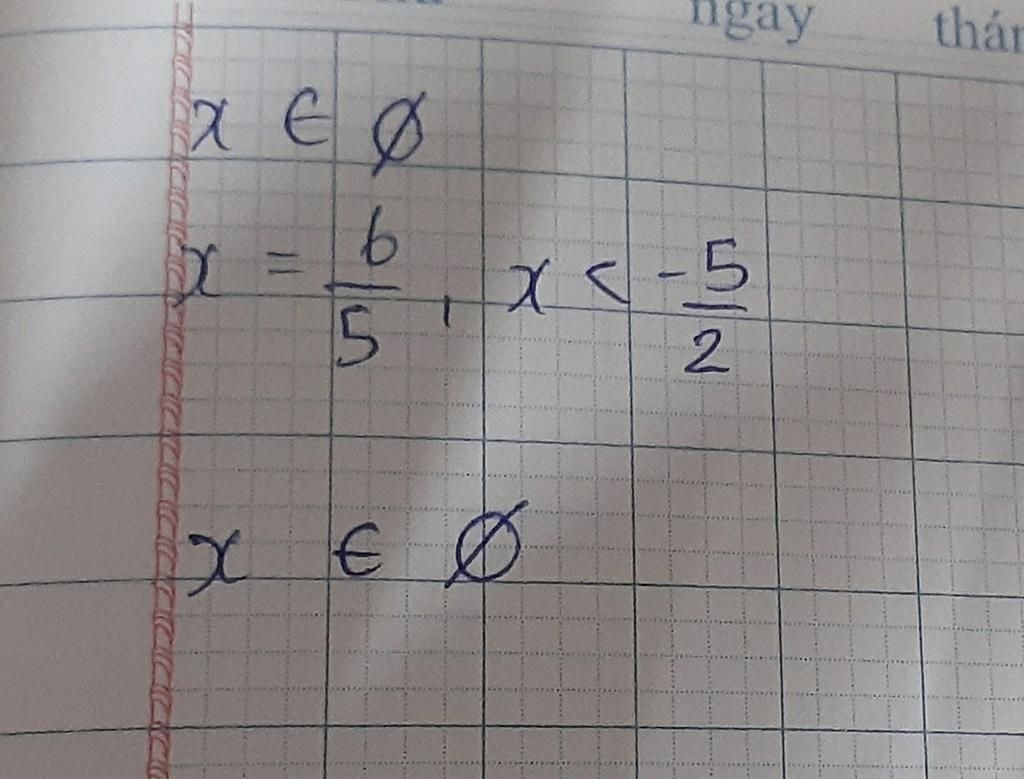 ngay thán
x ∈ ∅
x = 6/5, x < -5/2
x ∈ ∅